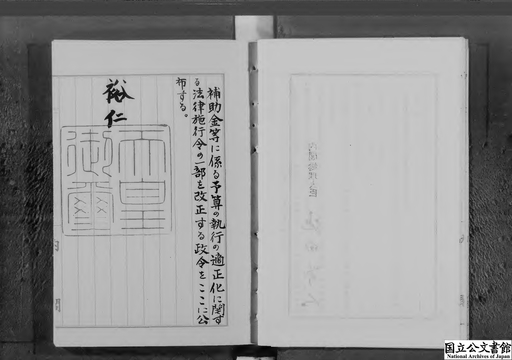 補助金等に係る予算の執行の適正化に関す
る法律施行令の一部を改正する政令をここに公
布する。
裕仁
天皇
御璽
国立公文書館
National Archives of Japan